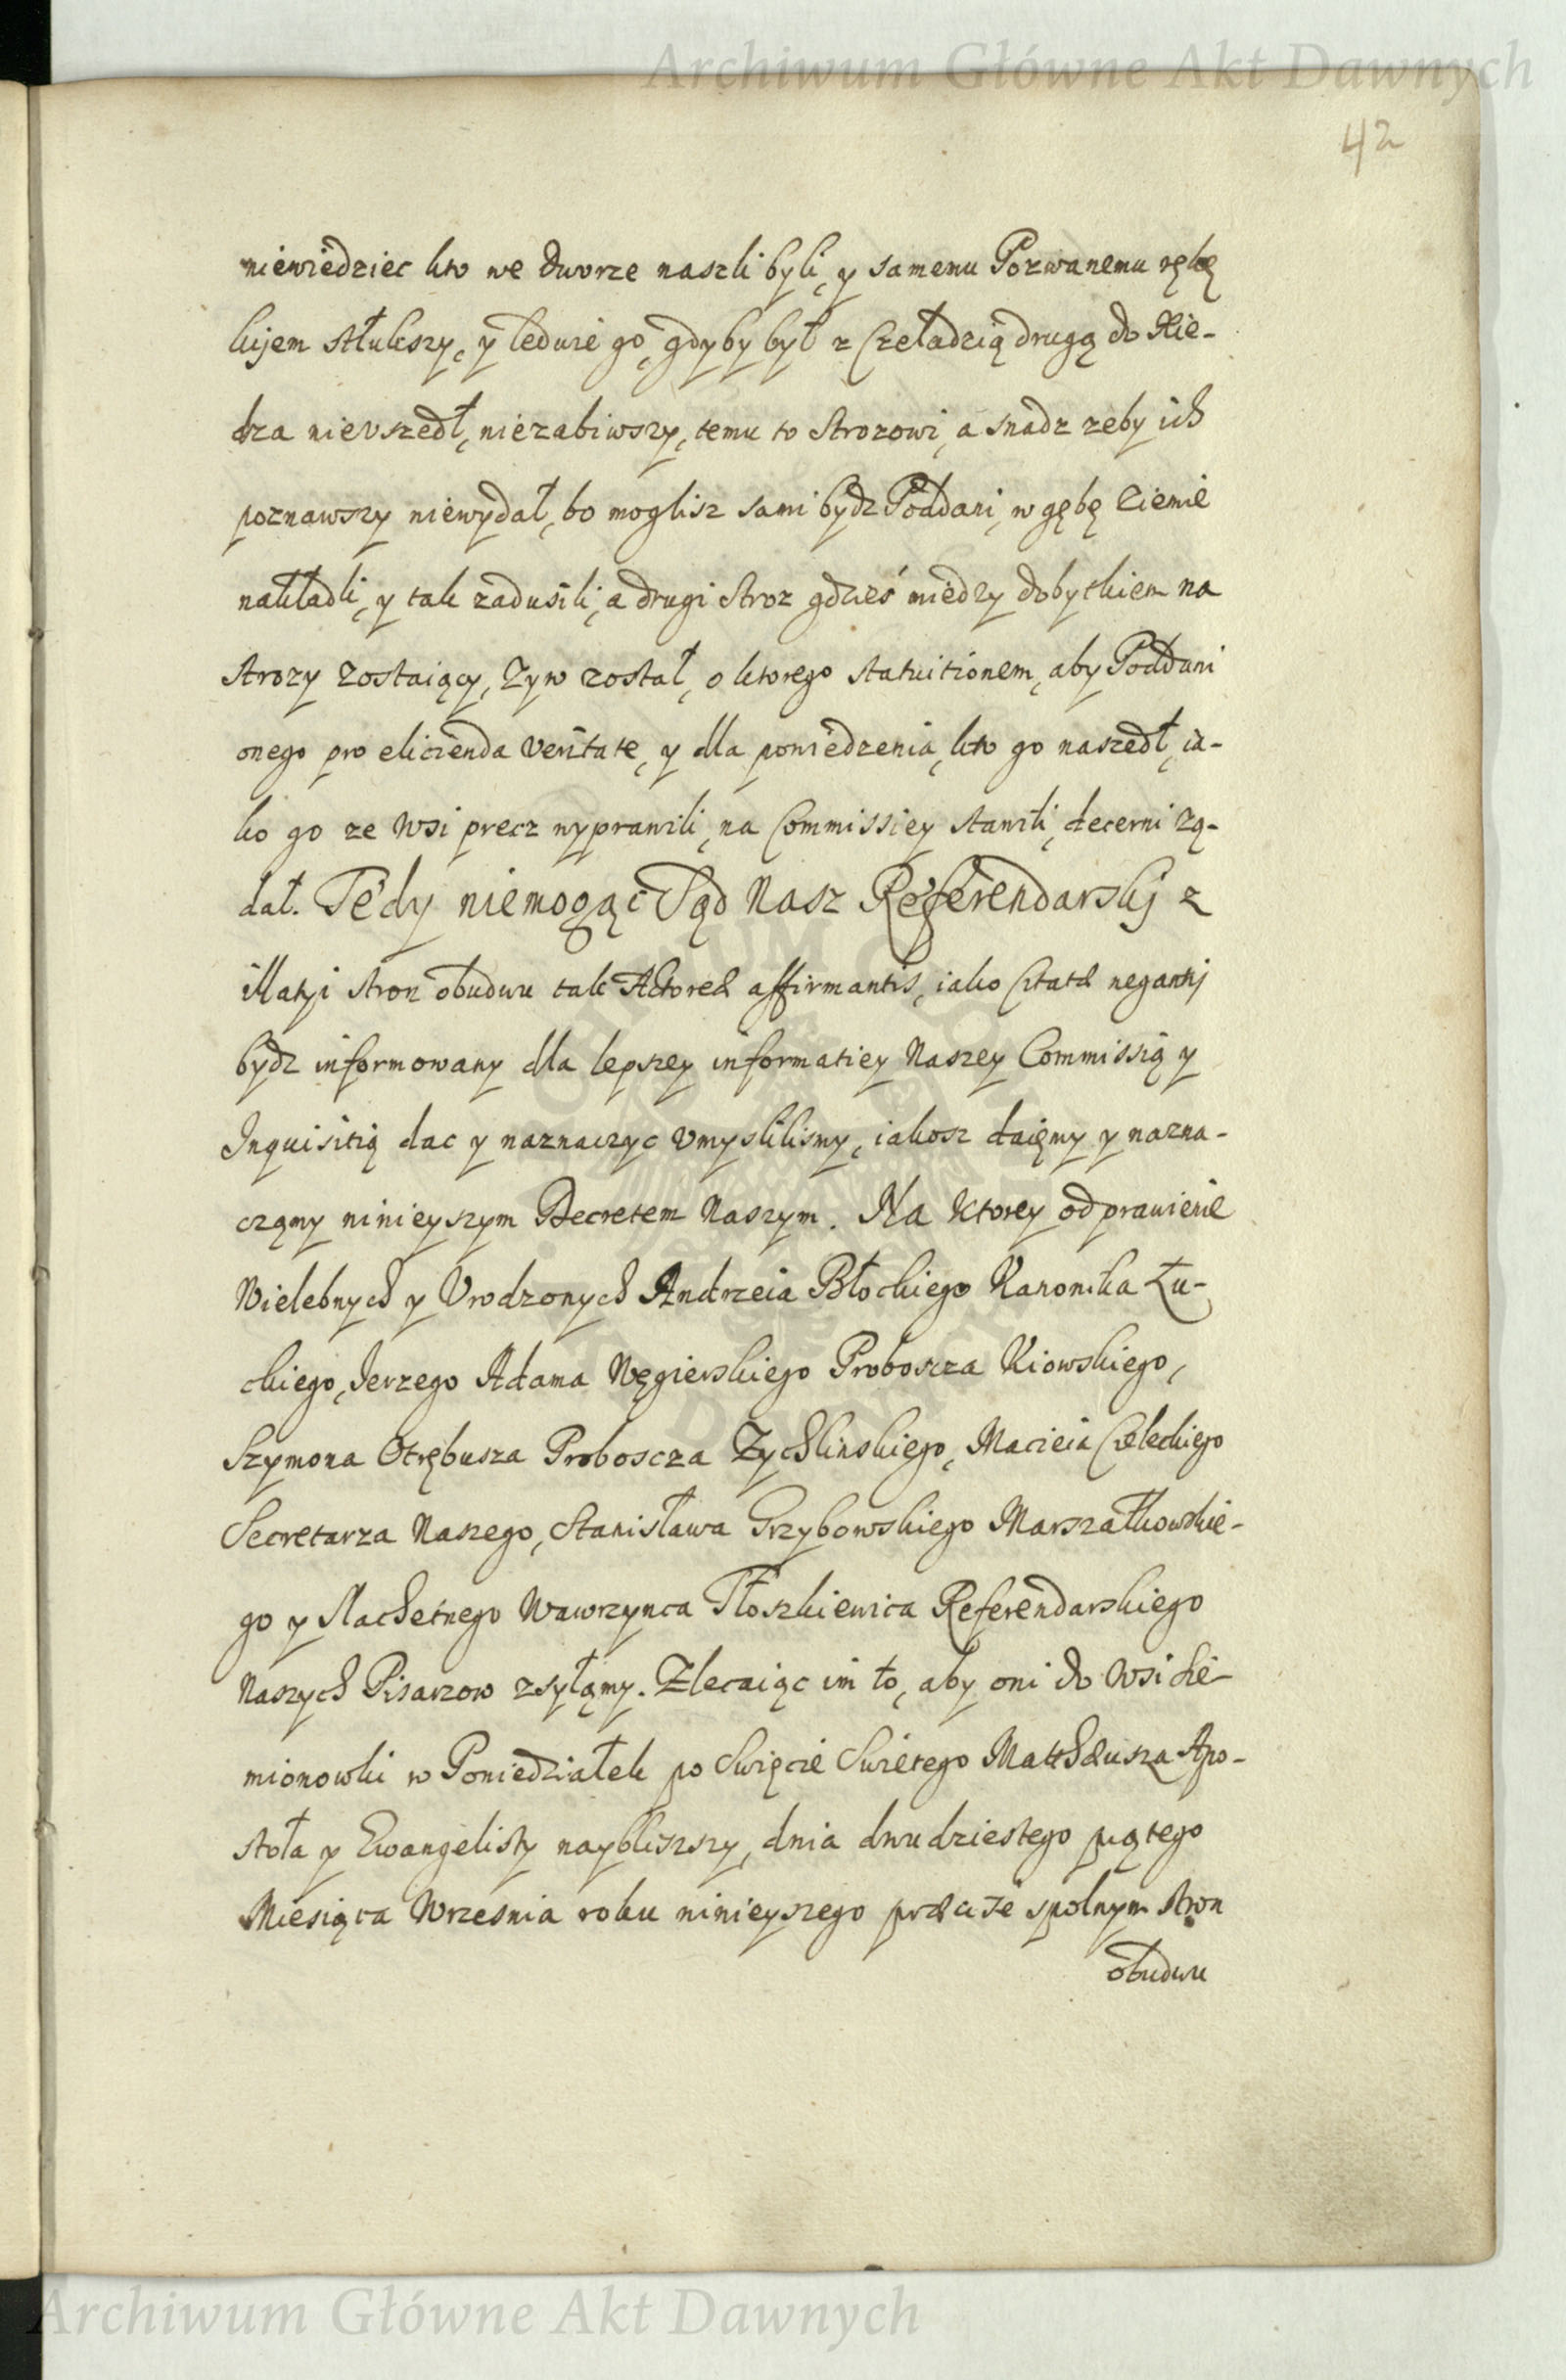 Archiwum Główne Akt Dawnych
42
niewiedziec kto we dworze naszli byli, y samemu Pozwanemu rękę
kijem stłukszy, y ledwie go, gdyby był z Czeladzią drugą do Xie-
dza nieuszedł, niezabiwszy, temu to Strozowi, a snadz zeby ich
poznawszy niewydał, bo moglisz sami bydz Poddani, w gębę ziemie
nakładli, y tak zadusili, a drugi stroz gdzieś miedzy dobytkiem na
strozy zostaiący, zyw został, o ktorego statuitionem, aby Poddani
onego pro elicienda veritate, y dla powiedzenia, kto go naszedł, ia-
ko go ze wsi precz wyprawili, na Commissiey stawili, decerni zą-
dał. Tedy niemogąc Sąd Nasz Referendarskj z
illatyi stron obudwu tak Actorea affirmantis, iako Citatæ negantj
bydz informowany dla lepszey informatiey Naszey Commissią y
Inquisitią dac y naznaczyc umyslilismy, iakosz daięmy y nazna-
cząmy ninieyszym Decretem Naszym. Na ktorey odprawienie
Wielebnych y Urodzonych Andrzeia Błockiego Kanonika Łu-
ckiego, Jerzego Adama Węgierskiego Proboszcza Kiowskiego,
Szymona Otrębusza Proboscza Zychlinskiego, Macieia Czeleckiego
Secretarza Naszego, Stanisława Grzybowskiego Marszałkowskie-
go y Slachetnego Wawrzynca Płoszkiewica Referendarskiego
Naszych Pisarzow zsyłąmy. Zlecaiąc im to, aby oni do wsi Sie-
mionowki w Poniedziałek po Swięcie Swietego Matthæusza Apo-
stoła y Ewangelisty naybliszszy, dnia dwudziestego piątego
Miesiąca Wrzesnia roku ninieyszego przcise spolnym stron
obudwu
Archiwum Główne Akt Dawnych